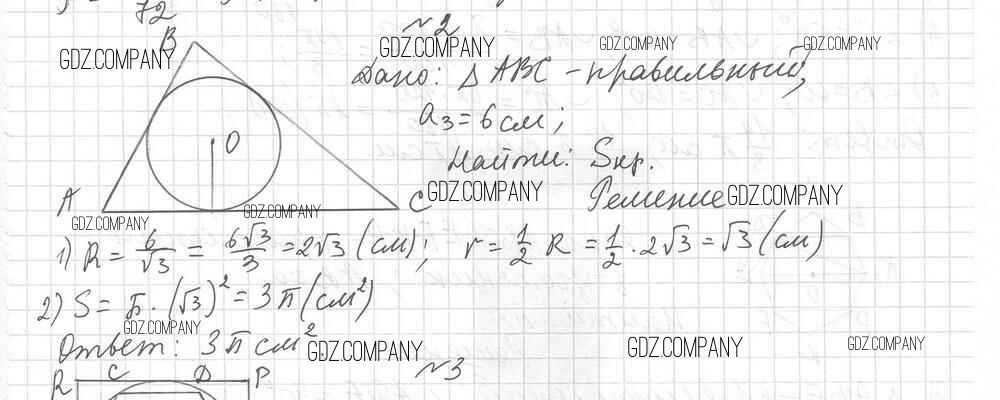 72
№2
B GDZ.COMPANY GDZ.COMPANY GDZ.COMPANY GDZ.COMPANY
Дано: △ABC - правильный,
a₃ = 6 см;
O
Найти: Sкр.
A C GDZ.COMPANY Решение GDZ.COMPANY
GDZ.COMPANY GDZ.COMPANY
1) R = 6/√3 = 6√3/3 = 2√3 (см); r = 1/2 R = 1/2 · 2√3 = √3 (см)
2) S = π · (√3)² = 3π (см²)
GDZ.COMPANY
Ответ: 3π см². GDZ.COMPANY GDZ.COMPANY GDZ.COMPANY
R C D P №3